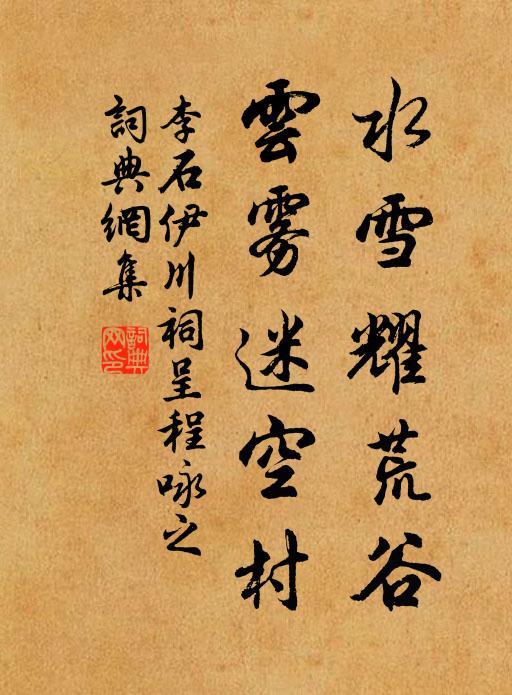 水雪耀荒谷
雲雾迷空村
李石伊川祠呈程咏之
詞典網集
詞典
网印